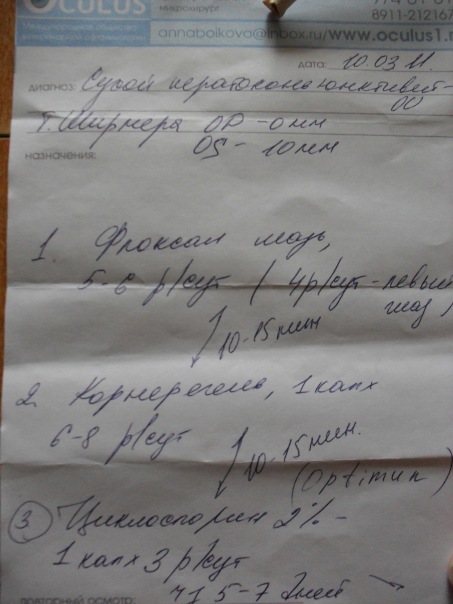 OCULUS
микрохирург
8911-212167
annaboikova@inbox.ru/www.oculus1.
дата: 10.03.11.
диагноз: Сухой кератоконъюнктивит-
OD
т. Ширмера OD - 0 мм
OS - 10 мм
назначения:
1. Флоксал мазь,
5-6 р/сут ( 4 р/сут - левый
глаз)
10-15 мин
2. Корнерегель, 1 кап х
6-8 р/сут
10-15 мин.
(Optimun)
3 Циклоспорин 2% -
1 кап х 3 р/сут
повторный осмотр: 5-7 дней